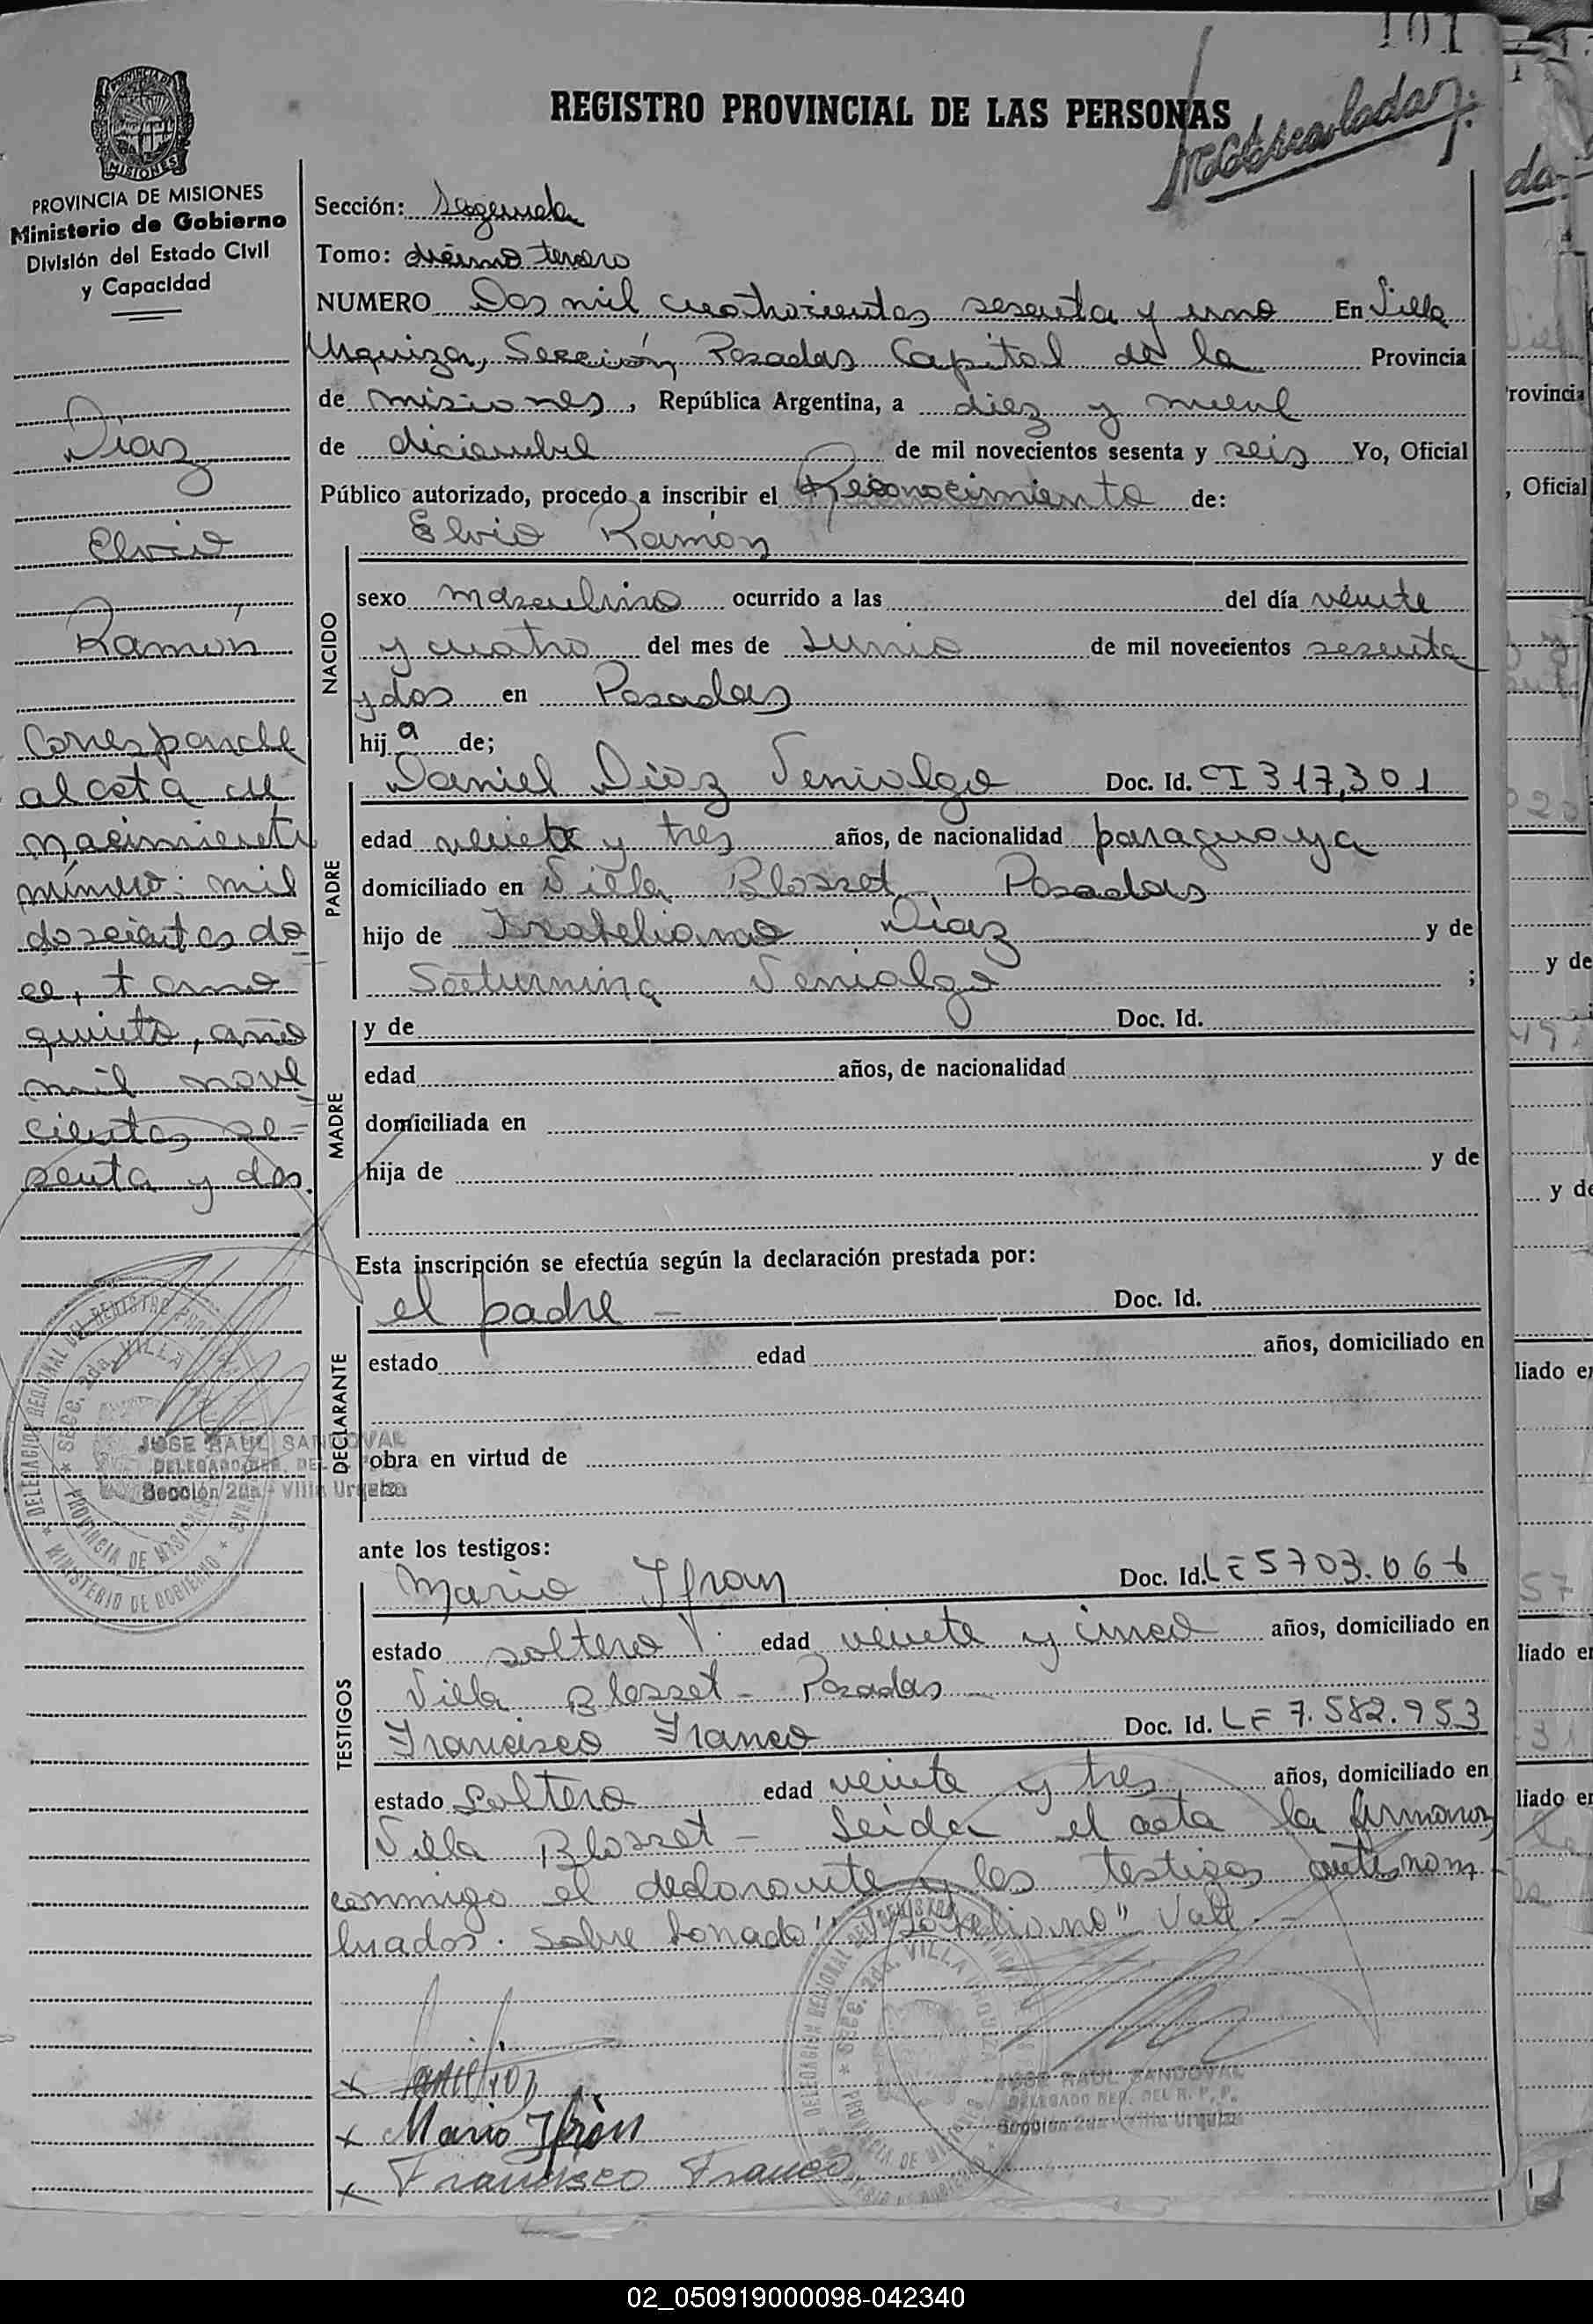 101
REGISTRO PROVINCIAL DE LAS PERSONAS
PROVINCIA DE MISIONES
Ministerio de Gobierno
División del Estado Civil
y Capacidad
Díaz
Elvio
Ramón
Corresponde
al acta de
nacimiento
número: mil
doscientos do
ce, tomo
quinto, año
mil nove
cientos se=
senta y dos.
Sección: Segunda
Tomo: décimo tercero
NUMERO Dos mil cuatrocientos sesenta y uno En Villa
Urquiza, Sección, Posadas Capital de la Provincia
de misiones, República Argentina, a diez y nueve
de diciembre de mil novecientos sesenta y seis Yo, Oficial
Público autorizado, procedo a inscribir el Reconocimiento de:
Elvio Ramón
NACIDO
sexo masculino ocurrido a las del día veinte
y cuatro del mes de Junio de mil novecientos sesenta
y dos en Posadas
hijo de;
PADRE
Daniel Díaz Venialgo Doc. Id. CI 317,301
edad veinte y tres años, de nacionalidad paraguaya
domiciliado en Villa Blosset Posadas
hijo de Isabeliano Díaz y de
Saturnina Venialgo ;
MADRE
y de Doc. Id.
edad años, de nacionalidad
domiciliada en
hija de y de
Esta inscripción se efectúa según la declaración prestada por:
DECLARANTE
el padre – Doc. Id.
estado edad años, domiciliado en
obra en virtud de
ante los testigos:
TESTIGOS
Mario Ifran Doc. Id. LE 5703.066
estado soltero edad veinte y cinco años, domiciliado en
Villa Blosset - Posadas
Francisco Franco Doc. Id. LE 7.582.953
estado soltero edad veinte y tres años, domiciliado en
Villa Blosset - Leida el acta la firman
conmigo el declarante y los testigos antenom-
brados. Sobre borrado "Isabeliano" Vale. -
JOSE RAUL SANDOVAL
DELEGADO REG. DEL
Sección 2da - Villa Urquiza
DELEGACION REGIONAL DEL REGISTRO PROV
Secc. 2da. VILLA
PROVINCIA DE MISIONES
MINISTERIO DE GOBIERNO
x
x Mario Ifrán
x Francisco Franco
JOSE RAUL SANDOVAL
DELEGADO REG. DEL R. P. P.
Sección 2da - Villa Urquiza
DELEGACION REGIONAL DEL REGISTRO
Secc. 2da. VILLA URQUIZA
PROVINCIA DE MISIONES
rovincia
, Oficial
y de
y de
liado en
liado en
liado en
02_050919000098-042340